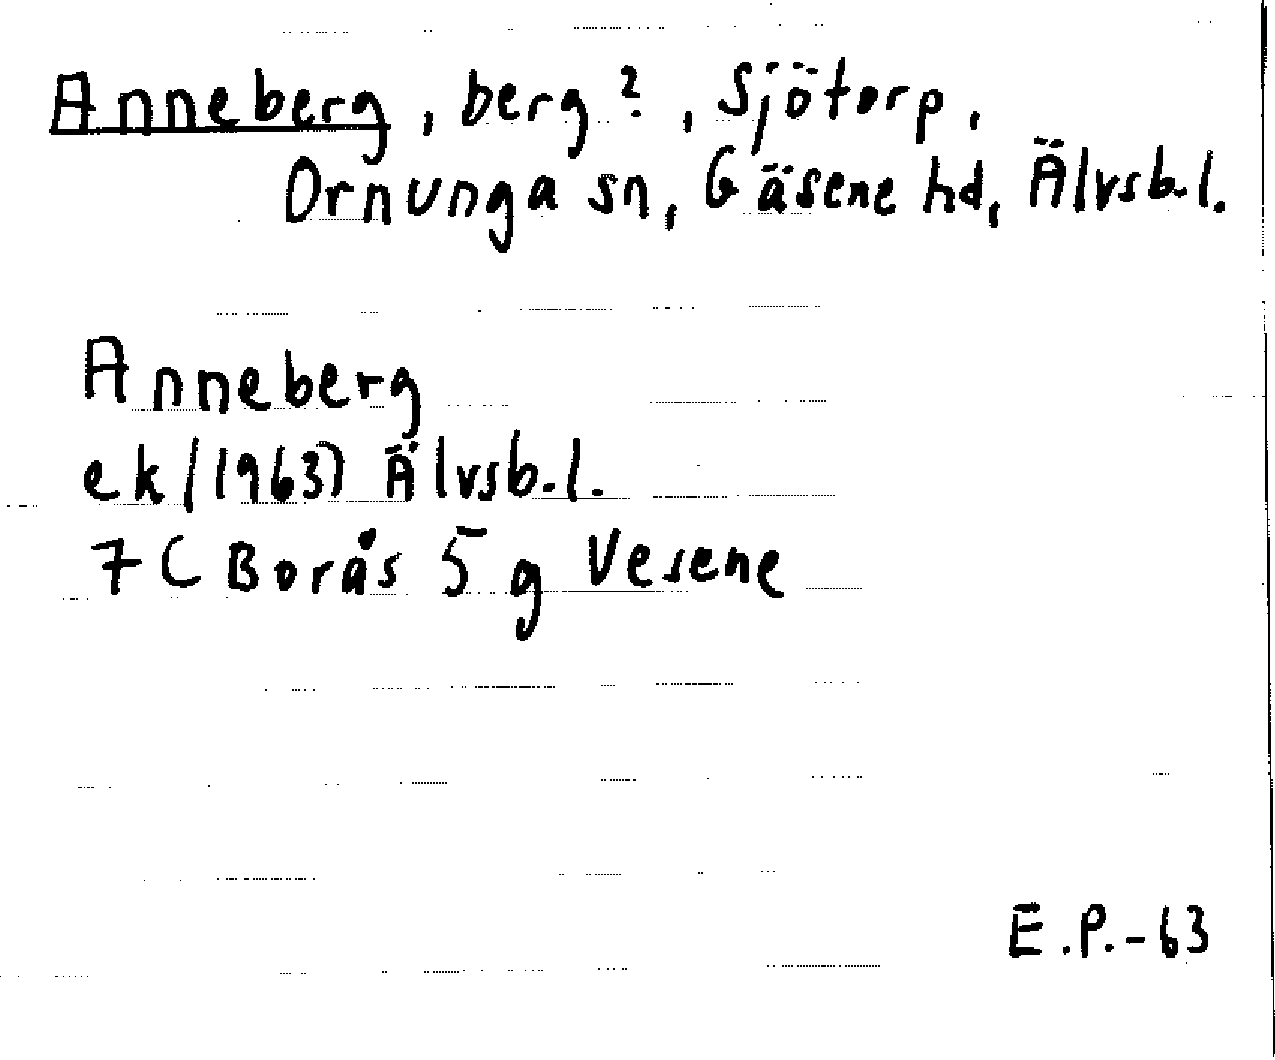 Anneberg, berg?, Sjötorp,
Ornunga sn, Gäsene hd, Älvsb.l.
Anneberg
ek/(1963) Älvsb.l.
7C Borås 5g Vesene
E.P.-63